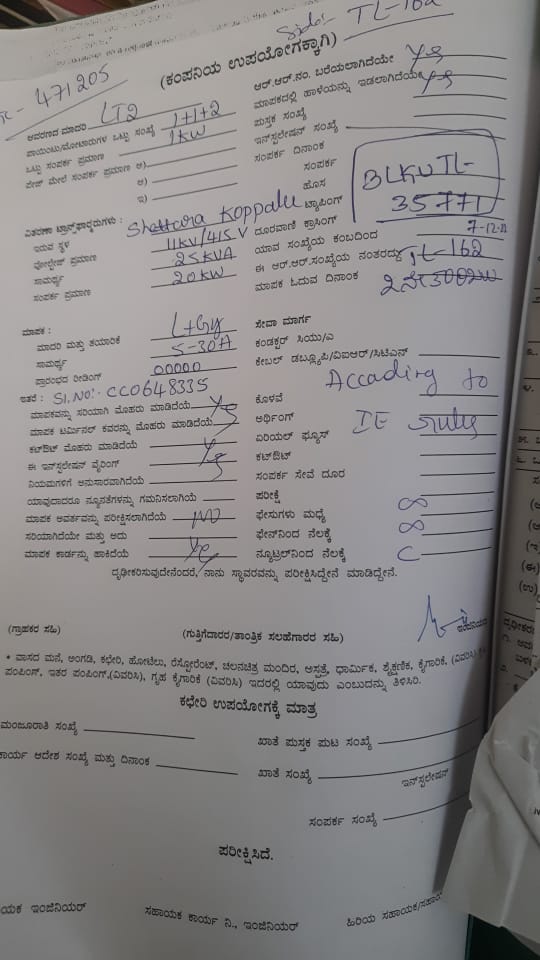 Side:- TL-162
(ಕಂಪನಿಯ ಉಪಯೋಗಕ್ಕಾಗಿ)
471205
ಆವರಣದ ಮಾದರಿ LT2
ಪಾಯಿಂಟು/ಮೋಟಾರುಗಳ ಒಟ್ಟು ಸಂಖ್ಯೆ 1+1+2
ಒಟ್ಟು ಸಂಪರ್ಕ ಪ್ರಮಾಣ 1KW
ಪೇಜ್ ಮೇಲೆ ಸಂಪರ್ಕ ಪ್ರಮಾಣ ಅ)
ಆ)
ಇ)
ಆರ್.ಆರ್.ನಂ. ಬರೆಯಲಾಗಿದೆಯೇ Yes
ಮಾಪಕದಲ್ಲಿ ಹಾಳೆಯನ್ನು ಇಡಲಾಗಿದೆಯೇ Yes
ಪುಸ್ತಕ ಸಂಖ್ಯೆ
ಇನ್‌ಸ್ಟಲೇಷನ್ ಸಂಖ್ಯೆ
ಸಂಪರ್ಕ ದಿನಾಂಕ
ಸಂಪರ್ಕ
ಹೊಸ
ಟ್ಯಾಪಿಂಗ್
BLKUTL-
35771
ವಿತರಣಾ ಟ್ರಾನ್ಸ್‌ಫಾರ್ಮರುಗಳು :
ಇರುವ ಸ್ಥಳ Koppalu
ವೋಲ್ಟೇಜ್ ಪ್ರಮಾಣ 11KV/415 V
ಸಾಮರ್ಥ್ಯ 25KVA
ಸಂಪರ್ಕ ಪ್ರಮಾಣ 20KW
ದೂರವಾಣಿ ಕ್ರಾಸಿಂಗ್
ಯಾವ ಸಂಖ್ಯೆಯ ಕಂಬದಿಂದ
ಈ ಆರ್.ಆರ್.ಸಂಖ್ಯೆಯ ನಂತರದ್ದು TL-162
ಮಾಪಕ ಓದುವ ದಿನಾಂಕ
ಮಾಪಕ :
ಮಾದರಿ ಮತ್ತು ತಯಾರಿಕೆ L+Gy
ಸಾಮರ್ಥ್ಯ 5-30A
ಪ್ರಾರಂಭದ ರೀಡಿಂಗ್ 00000
ಇತರೆ : Sl.No:- CC0648335
ಮಾಪಕವನ್ನು ಸರಿಯಾಗಿ ಮೊಹರು ಮಾಡಿದೆಯೆ Yes
ಮಾಪಕ ಟರ್ಮಿನಲ್ ಕವರನ್ನು ಮೊಹರು ಮಾಡಿದೆಯೆ
ಕಟ್‌ಔಟ್ ಮೊಹರು ಮಾಡಿದೆಯೆ
ಈ ಇನ್‌ಸ್ಟಲೇಷನ್ ವೈರಿಂಗ್ Yes
ನಿಯಮಗಳಿಗೆ ಅನುಸಾರವಾಗಿದೆಯೆ
ಯಾವುದಾದರೂ ನ್ಯೂನತೆಗಳನ್ನು ಗಮನಿಸಲಾಗಿಯೆ
ಮಾಪಕ ಅವರ್ತವನ್ನು ಪರೀಕ್ಷಿಸಲಾಗಿದೆಯೆ NO
ಸರಿಯಾಗಿದೆಯೇ ಮತ್ತು ಅದು
ಮಾಪಕ ಕಾರ್ಡನ್ನು ಹಾಕಿದೆಯೆ Yes
ಸೇವಾ ಮಾರ್ಗ
ಕಂಡಕ್ಟರ್ ಸಿಯು/ಎ
ಕೇಬಲ್ ಡಬ್ಲ್ಯೂಪಿ/ವಿಐಆರ್/ಸಿಟಿಎಸ್
Accading to
IE rules
ಕೊಳವೆ
ಅರ್ಥಿಂಗ್
ಏರಿಯಲ್ ಫ್ಯೂಸ್
ಕಟ್‌ಔಟ್
ಸಂಪರ್ಕ ಸೇವೆ ದೂರ
ಪರೀಕ್ಷೆ
ಫೇಸುಗಳು ಮಧ್ಯೆ ∞
ಫೇಸ್‌ನಿಂದ ನೆಲಕ್ಕೆ ∞
ನ್ಯೂಟ್ರಲ್‌ನಿಂದ ನೆಲಕ್ಕೆ
ದೃಢೀಕರಿಸುವುದೇನೆಂದರೆ, ನಾನು ಸ್ಥಾವರವನ್ನು ಪರೀಕ್ಷಿಸಿದ್ದೇನೆ ಮಾಡಿದ್ದೇನೆ.
(ಗ್ರಾಹಕರ ಸಹಿ) (ಗುತ್ತಿಗೆದಾರರ/ತಾಂತ್ರಿಕ ಸಲಹೆಗಾರರ ಸಹಿ)
* ವಾಸದ ಮನೆ, ಅಂಗಡಿ, ಕಛೇರಿ, ಹೋಟೆಲು, ರೆಸ್ಟೋರೆಂಟ್, ಚಲನಚಿತ್ರ ಮಂದಿರ, ಆಸ್ಪತ್ರೆ, ಧಾರ್ಮಿಕ, ಶೈಕ್ಷಣಿಕ, ಕೈಗಾರಿಕೆ, (ವಿವರಿಸಿ)
ಪಂಪಿಂಗ್, ಇತರ ಪಂಪಿಂಗ್,(ವಿವರಿಸಿ), ಗೃಹ ಕೈಗಾರಿಕೆ (ವಿವರಿಸಿ) ಇದರಲ್ಲಿ ಯಾವುದು ಎಂಬುದನ್ನು ತಿಳಿಸಿರಿ.
ಕಛೇರಿ ಉಪಯೋಗಕ್ಕೆ ಮಾತ್ರ
ಮಂಜೂರಾತಿ ಸಂಖ್ಯೆ
ಖಾತೆ ಪುಸ್ತಕ ಪುಟ ಸಂಖ್ಯೆ
ಕಾರ್ಯ ಆದೇಶ ಸಂಖ್ಯೆ ಮತ್ತು ದಿನಾಂಕ
ಖಾತೆ ಸಂಖ್ಯೆ
ಇನ್‌ಸ್ಟಲೇಷನ್
ಸಂಪರ್ಕ ಸಂಖ್ಯೆ
ಪರೀಕ್ಷಿಸಿದೆ.
ಯಕ ಇಂಜಿನಿಯರ್ ಸಹಾಯಕ ಕಾರ್ಯ ನಿ., ಇಂಜಿನಿಯರ್ ಹಿರಿಯ ಸಹಾಯಕ/ಸಹಾಯ